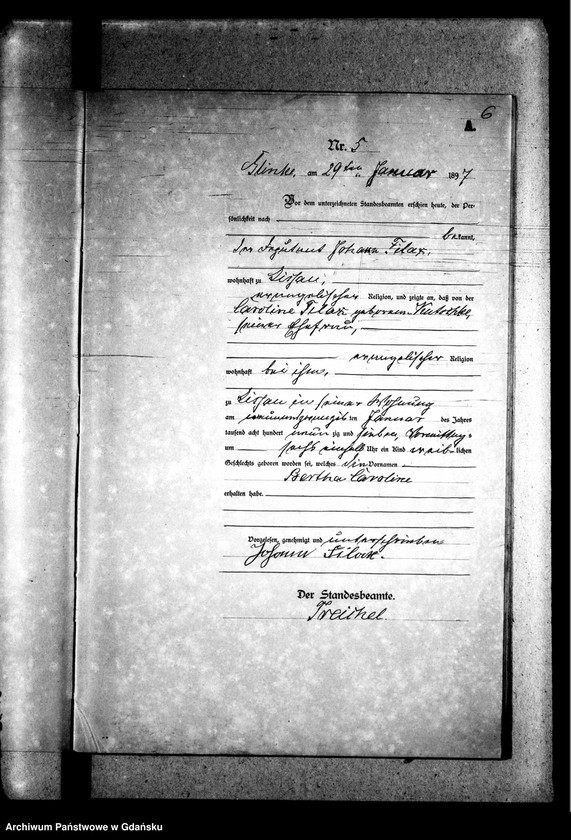 6
A.
Nr. 5
Glinke, am 29ten Januar 1897
Vor dem unterzeichneten Standesbeamten erschien heute, der Per-
sönlichkeit nach
bekannt,
der Johann Filax,
wohnhaft zu Lissau,
evangelischer Religion, und zeigte an, daß von der
Caroline Filax geborenen Kutschke,
seiner Ehefrau,
evangelischer Religion
wohnhaft bei ihm,
zu Lissau in seiner Wohnung
am neunundzwanzigsten Januar des Jahres
tausend acht hundert neunzig und sieben, Vormittags
um sechs einhalb Uhr ein Kind weiblichen
Geschlechts geboren worden sei, welches die Vornamen
Bertha Caroline
erhalten habe.
Vorgelesen, genehmigt und unterschrieben
Johann Filax.
Der Standesbeamte.
Treichel.
Archiwum Państwowe w Gdańsku